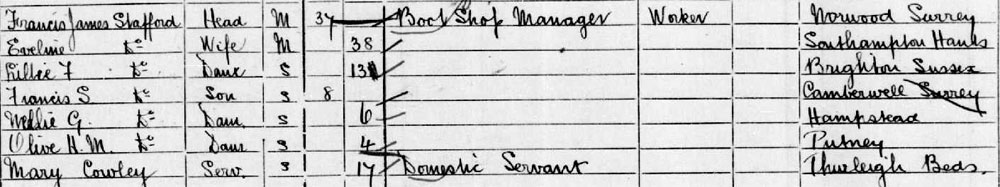 Francis James Stafford Head M 37 Boot Shop Manager Worker Norwood Surrey
Eveline Do Wife M 38 Southampton Hants
Lillie F Do Daur S 13 Brighton Sussex
Francis S. Do Son S 8 Camberwell Surrey
Nellie G. Do Daur S 6 Hampstead
Olive H.M. Do Daur S 4 Putney
Mary Cowley Serv. S 17 Domestic Servant Thurleigh Beds.